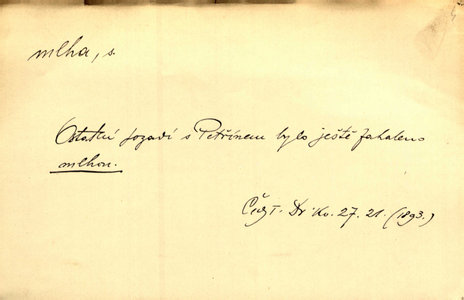 mlha, s.
Ostatní pozadí s Petřínem bylo ještě zahaleno
mlhou.
Dr. Kv. 27. 21. (1893.)